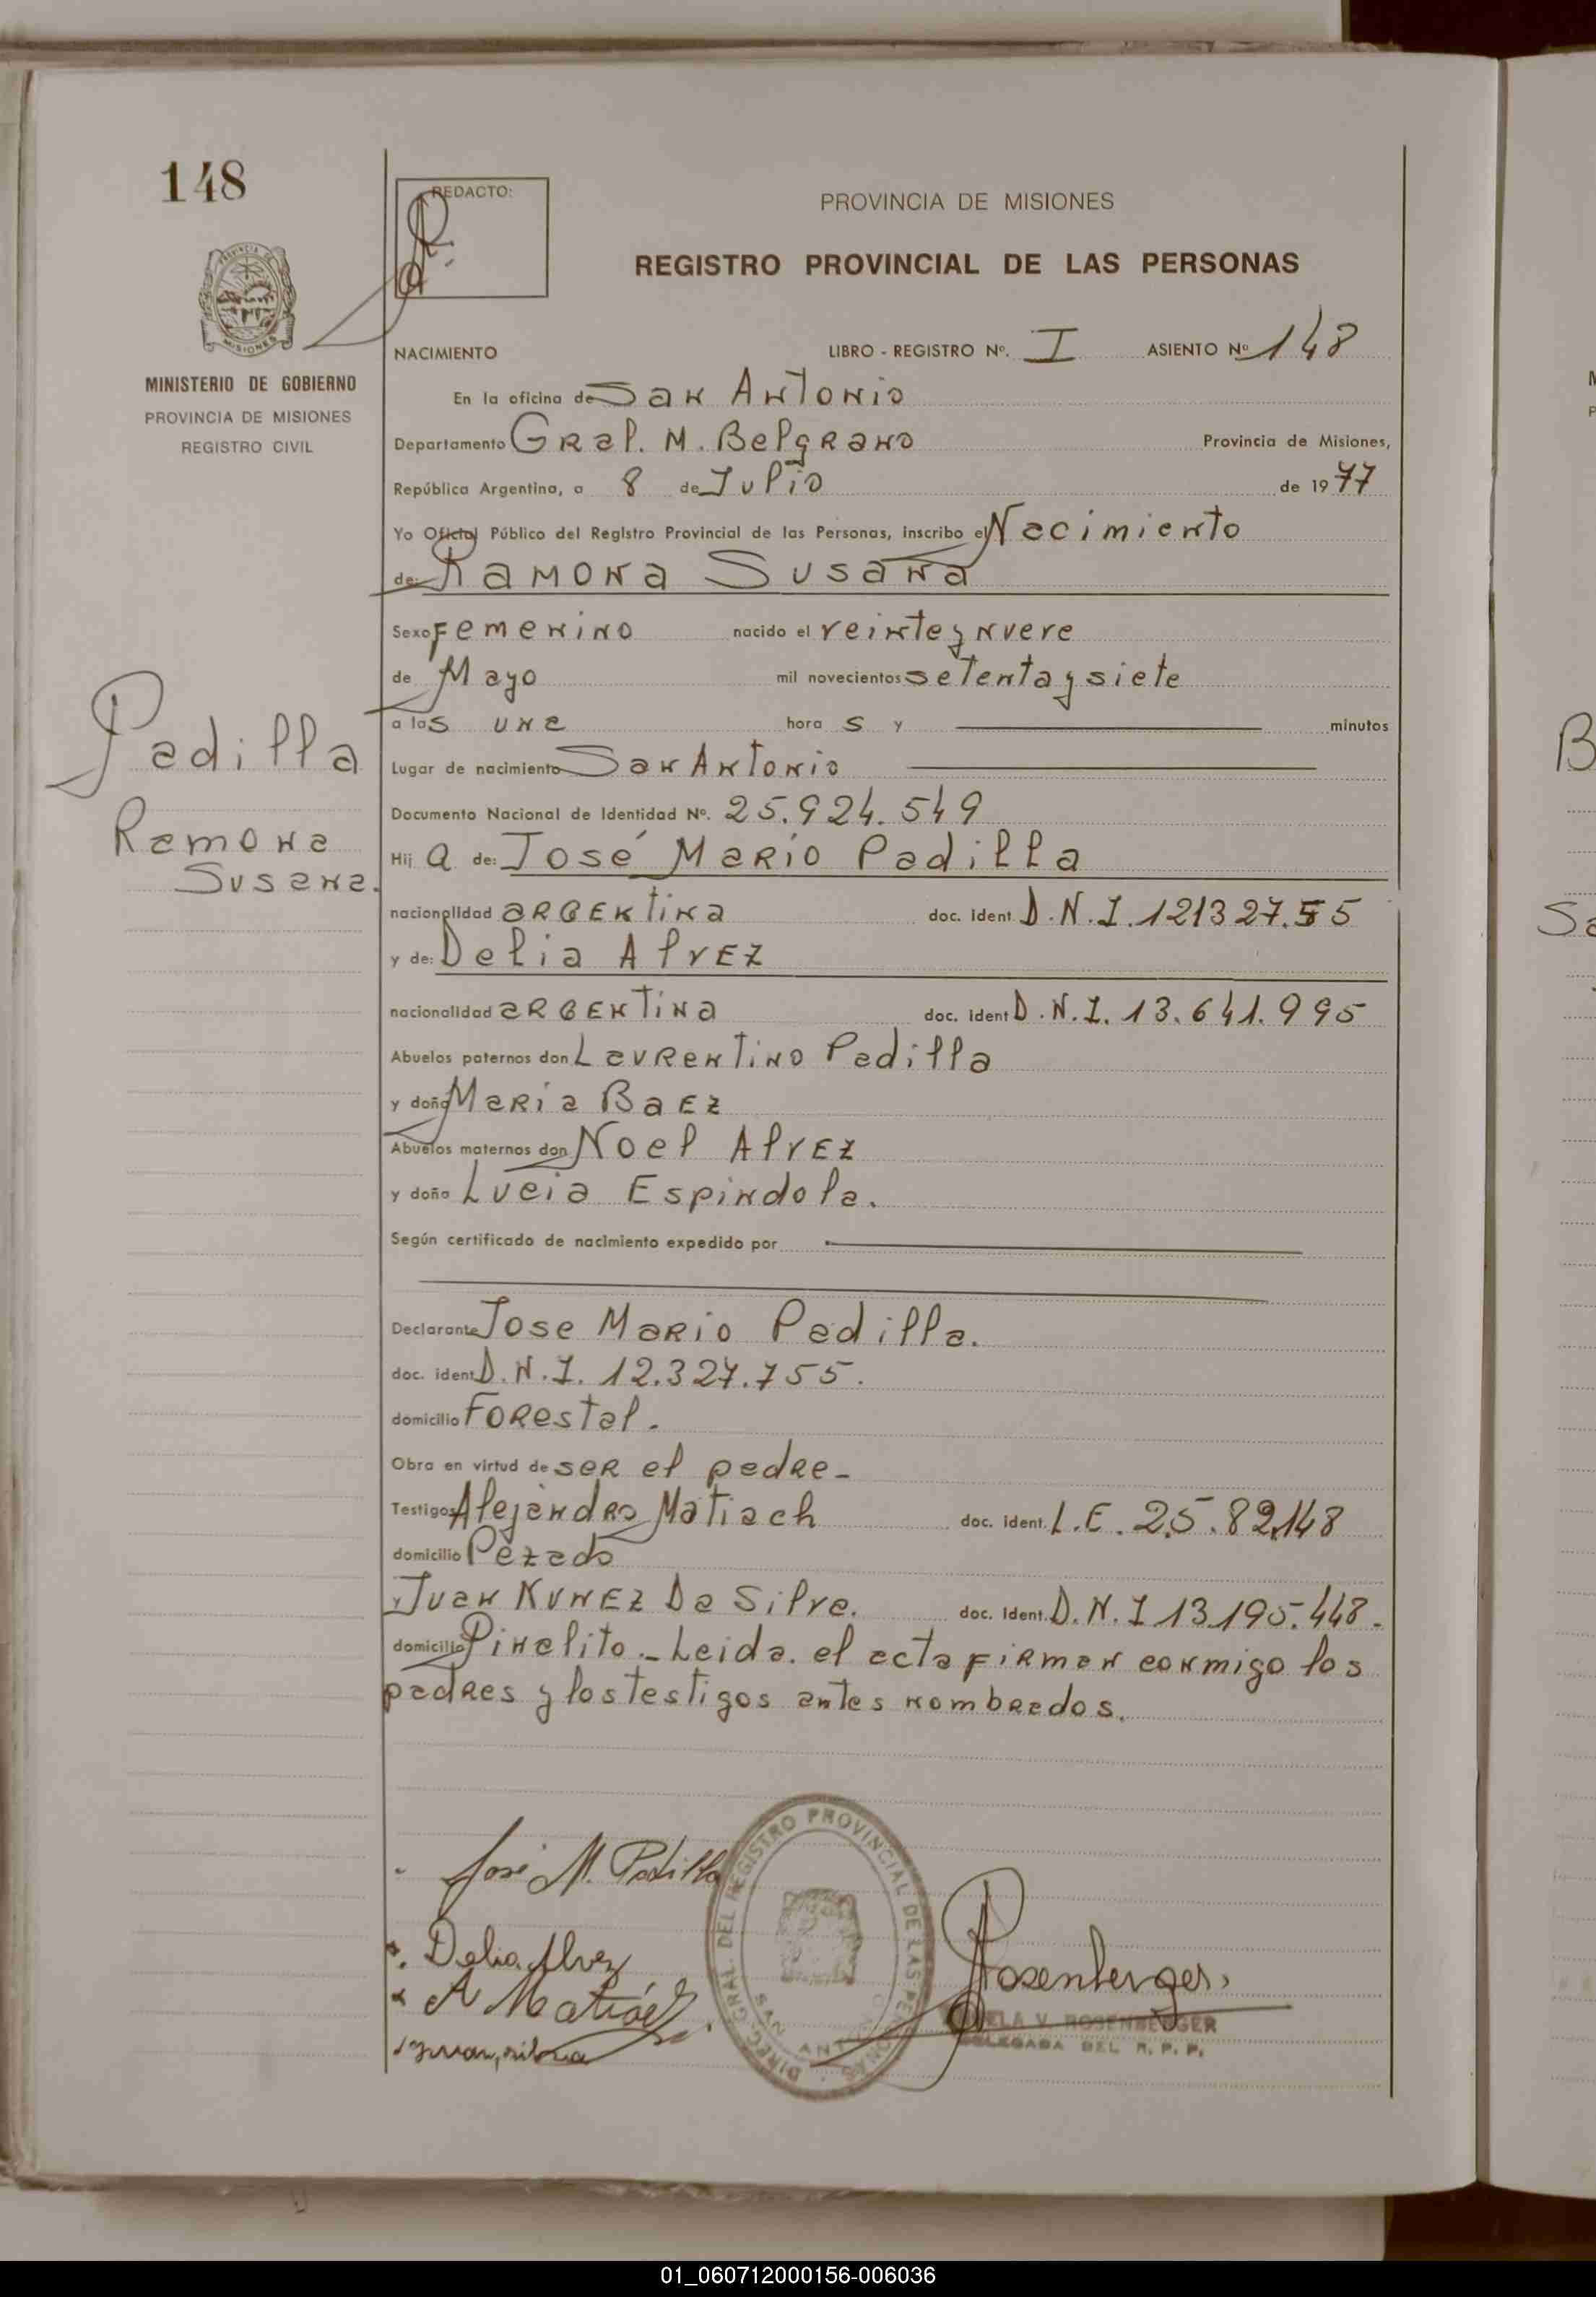 148
REDACTO:
PROVINCIA DE MISIONES
REGISTRO PROVINCIAL DE LAS PERSONAS
PROVINCIA
MISIONES
MINISTERIO DE GOBIERNO
PROVINCIA DE MISIONES
REGISTRO CIVIL
NACIMIENTO LIBRO - REGISTRO Nº. I ASIENTO Nº 148
En la oficina de San Antonio
Departamento Gral. M. Belgrano Provincia de Misiones,
República Argentina, a 8 de Julio de 1977
Yo Oficial Público del Registro Provincial de las Personas, inscribo el Nacimiento
de: Ramona Susana
Sexo Femenino nacido el veinte y nueve
de Mayo mil novecientos setenta y siete
a las una hora s y minutos
Padilla
Ramona
Susana.
Lugar de nacimiento San Antonio
Documento Nacional de Identidad Nº. 25.924.549
Hij a de: José Mario Padilla
nacionalidad argentina doc. ident. D.N.I. 121327.55
y de: Delia Alvez
nacionalidad argentina doc. ident D.N.I. 13.641.995
Abuelos paternos don Laurentino Padilla
y doña Maria Baez
Abuelos maternos don Noel Alvez
y doña Lucia Espindola.
Según certificado de nacimiento expedido por
Declarante Jose Mario Padilla.
doc. ident D.N.I. 12.327.755.
domicilio Forestal.
Obra en virtud de ser el padre-
Testigos Alejandro Matiach doc. ident. L.E. 25.82.148
domicilio Pezado
y Juan Nunez Da Silva. doc. ident. D.N.I 13.195.448.
domicilio Pinalito.- Leida. el acta firman conmigo los
padres y los testigos antes nombrados.
José M. Padilla
Delia Alvez
DIREC. GRAL. DEL REGISTRO PROVINCIAL DE LAS PERSONAS
SAN ANTONIO
Rosenberger
V. ROSENBERGER
DELEGADA DEL R. P. P.
B
01_060712000156-006036